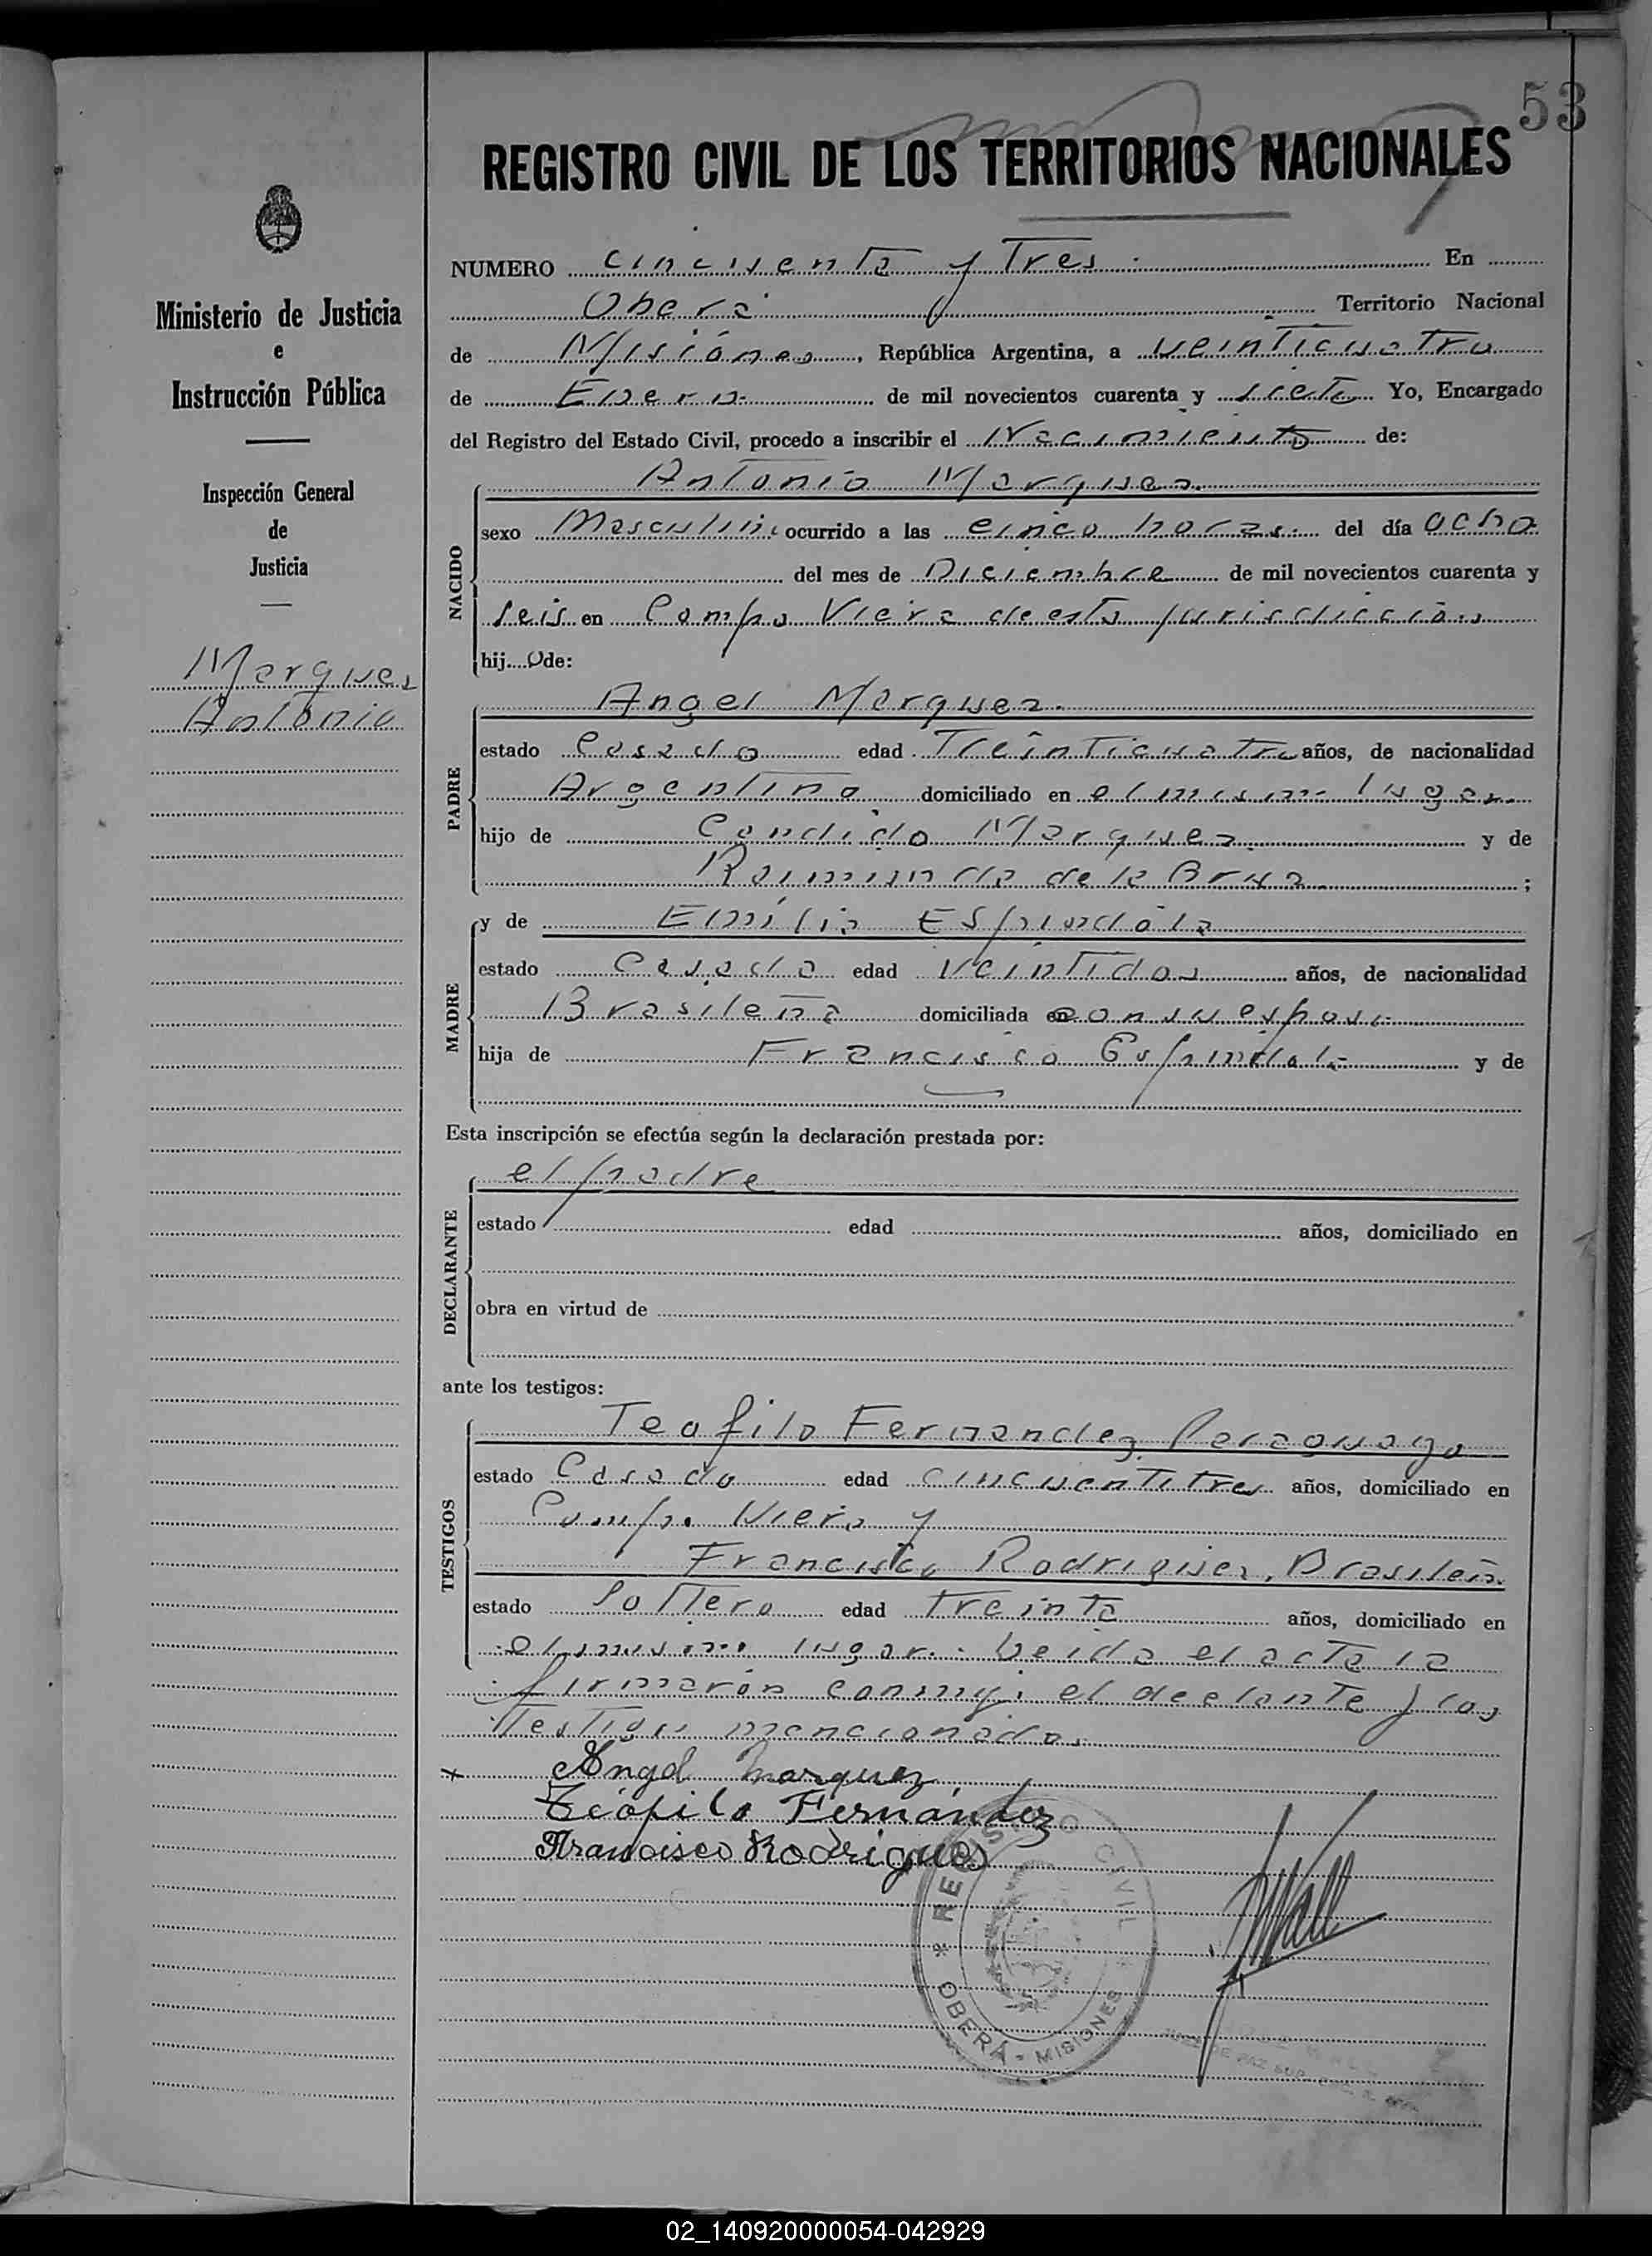 53
REGISTRO CIVIL DE LOS TERRITORIOS NACIONALES
Ministerio de Justicia
e
Instrucción Pública
Inspección General
de
Justicia
Marquez
Antonio
NUMERO cincuenta y Tres. En
Oberá Territorio Nacional
de Misiónes, República Argentina, a veinticuatro
de Enero de mil novecientos cuarenta y siete Yo, Encargado
del Registro del Estado Civil, procedo a inscribir el Nacimiento de:
NACIDO
Antonio Marquez.
sexo Masculino ocurrido a las cinco horas. del día ocho
del mes de Diciembre de mil novecientos cuarenta y
seis en Campo Viera de esta jurisdicción
hijo de:
PADRE
Angel Marquez.
estado Casado edad Treinticuatro años, de nacionalidad
Argentino domiciliado en el mismo lugar
hijo de Candido Marquez y de
Raimunda de la Cruz ;
MADRE
y de Emilia Espindola
estado Casada edad Veintidos años, de nacionalidad
Brasileña domiciliada en con su esposo
hija de Francisco Espindola y de
Esta inscripción se efectúa según la declaración prestada por:
DECLARANTE
el padre
estado edad años, domiciliado en
obra en virtud de
ante los testigos:
TESTIGOS
Teofilo Fernandez, Paraguayo
estado Casado edad cincuentitres años, domiciliado en
Campo Viera y
Francisco Rodriguez, Brasileño
estado Soltero edad treinta años, domiciliado en
el mismo lugar. Leida el acta la
firmarón conmigo el declante y los
Testigos mencionados.
x Angel Marquez
Teófilo Fernández
Francisco Rodrigues
REGISTRO CIVIL
OBERÁ - MISIONES
JUEZ DE PAZ SUP.
02_140920000054-042929